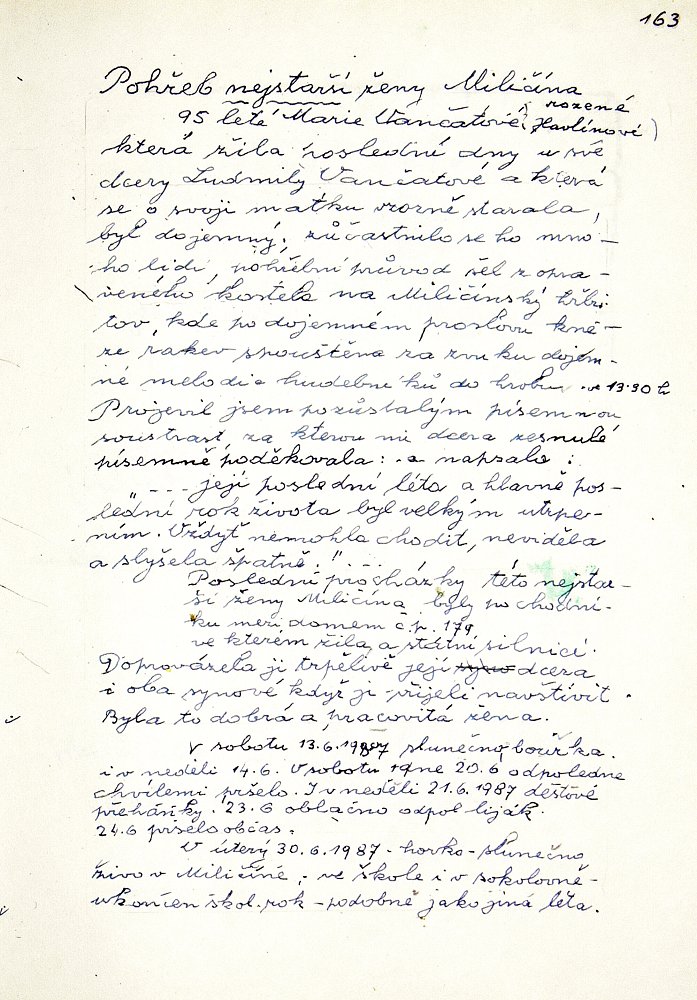 163
Pohřeb nejstarší ženy Miličína
95 leté Marie Vančatové (rozené
Havlínové)
která žila poslední dny u své
dcery Ludmily Vančatové a která
se o svoji matku vzorně starala,
byl dojemný. zůčastnilo se ho mno-
ho lidí, pohřební průvod šel z opra-
veného kostela na Miličínský hřbi-
tov, kde po dojemném proslovu kně-
ze rakev spouštěna za zvuku dojem-
né melodie hudebníků do hrobu. ve 13.30 h
Projevil jsem pozůstalým písemnou
soustrast, za kterou mi dcera zesnulé
písemně poděkovala: a napsala:
"--- její poslední léta a hlavně pos-
lední rok života byl velkým utrpe-
ním. Vždyť nemohla chodit, neviděla
a slyšela špatně."...
Poslední procházky této nejstar-
ší ženy Miličína byly po chodní-
ku mezi domem č.p. 179
ve kterém žila, a státní silnicí.
Doprovázela ji trpělivě její dcera
i oba synové když ji přijeli navštívit.
Byla to dobrá a pracovitá žena.
V sobotu 13.6.1987 slunečno, bouřka.
i v neděli 14.6. V sobotu dne 20.6 odpoledne
chvílemi pršelo. I v neděli 21.6.1987 dešťové
přeháňky. 23.6 oblačno odpol liják.
24.6 pršelo občas.
V úterý 30.6.1987 - horko - slunečno
živo v Miličíně, - ve škole i v sokolovně -
ukončen škol. rok - podobně jako jiná léta.